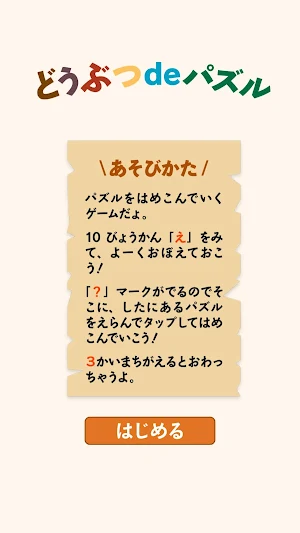 どうぶつdeパズル
\あそびかた/
パズルをはめこんでいく
ゲームだょ。
10 びょうかん「え」をみ
て、よーくおぼえておこ
う!
「?」マークがでるのでそ
こに、したにあるパズル
をえらんでタップしてはめ
こんでいこう!
3かいまちがえるとおわっ
ちゃうよ。
はじめる